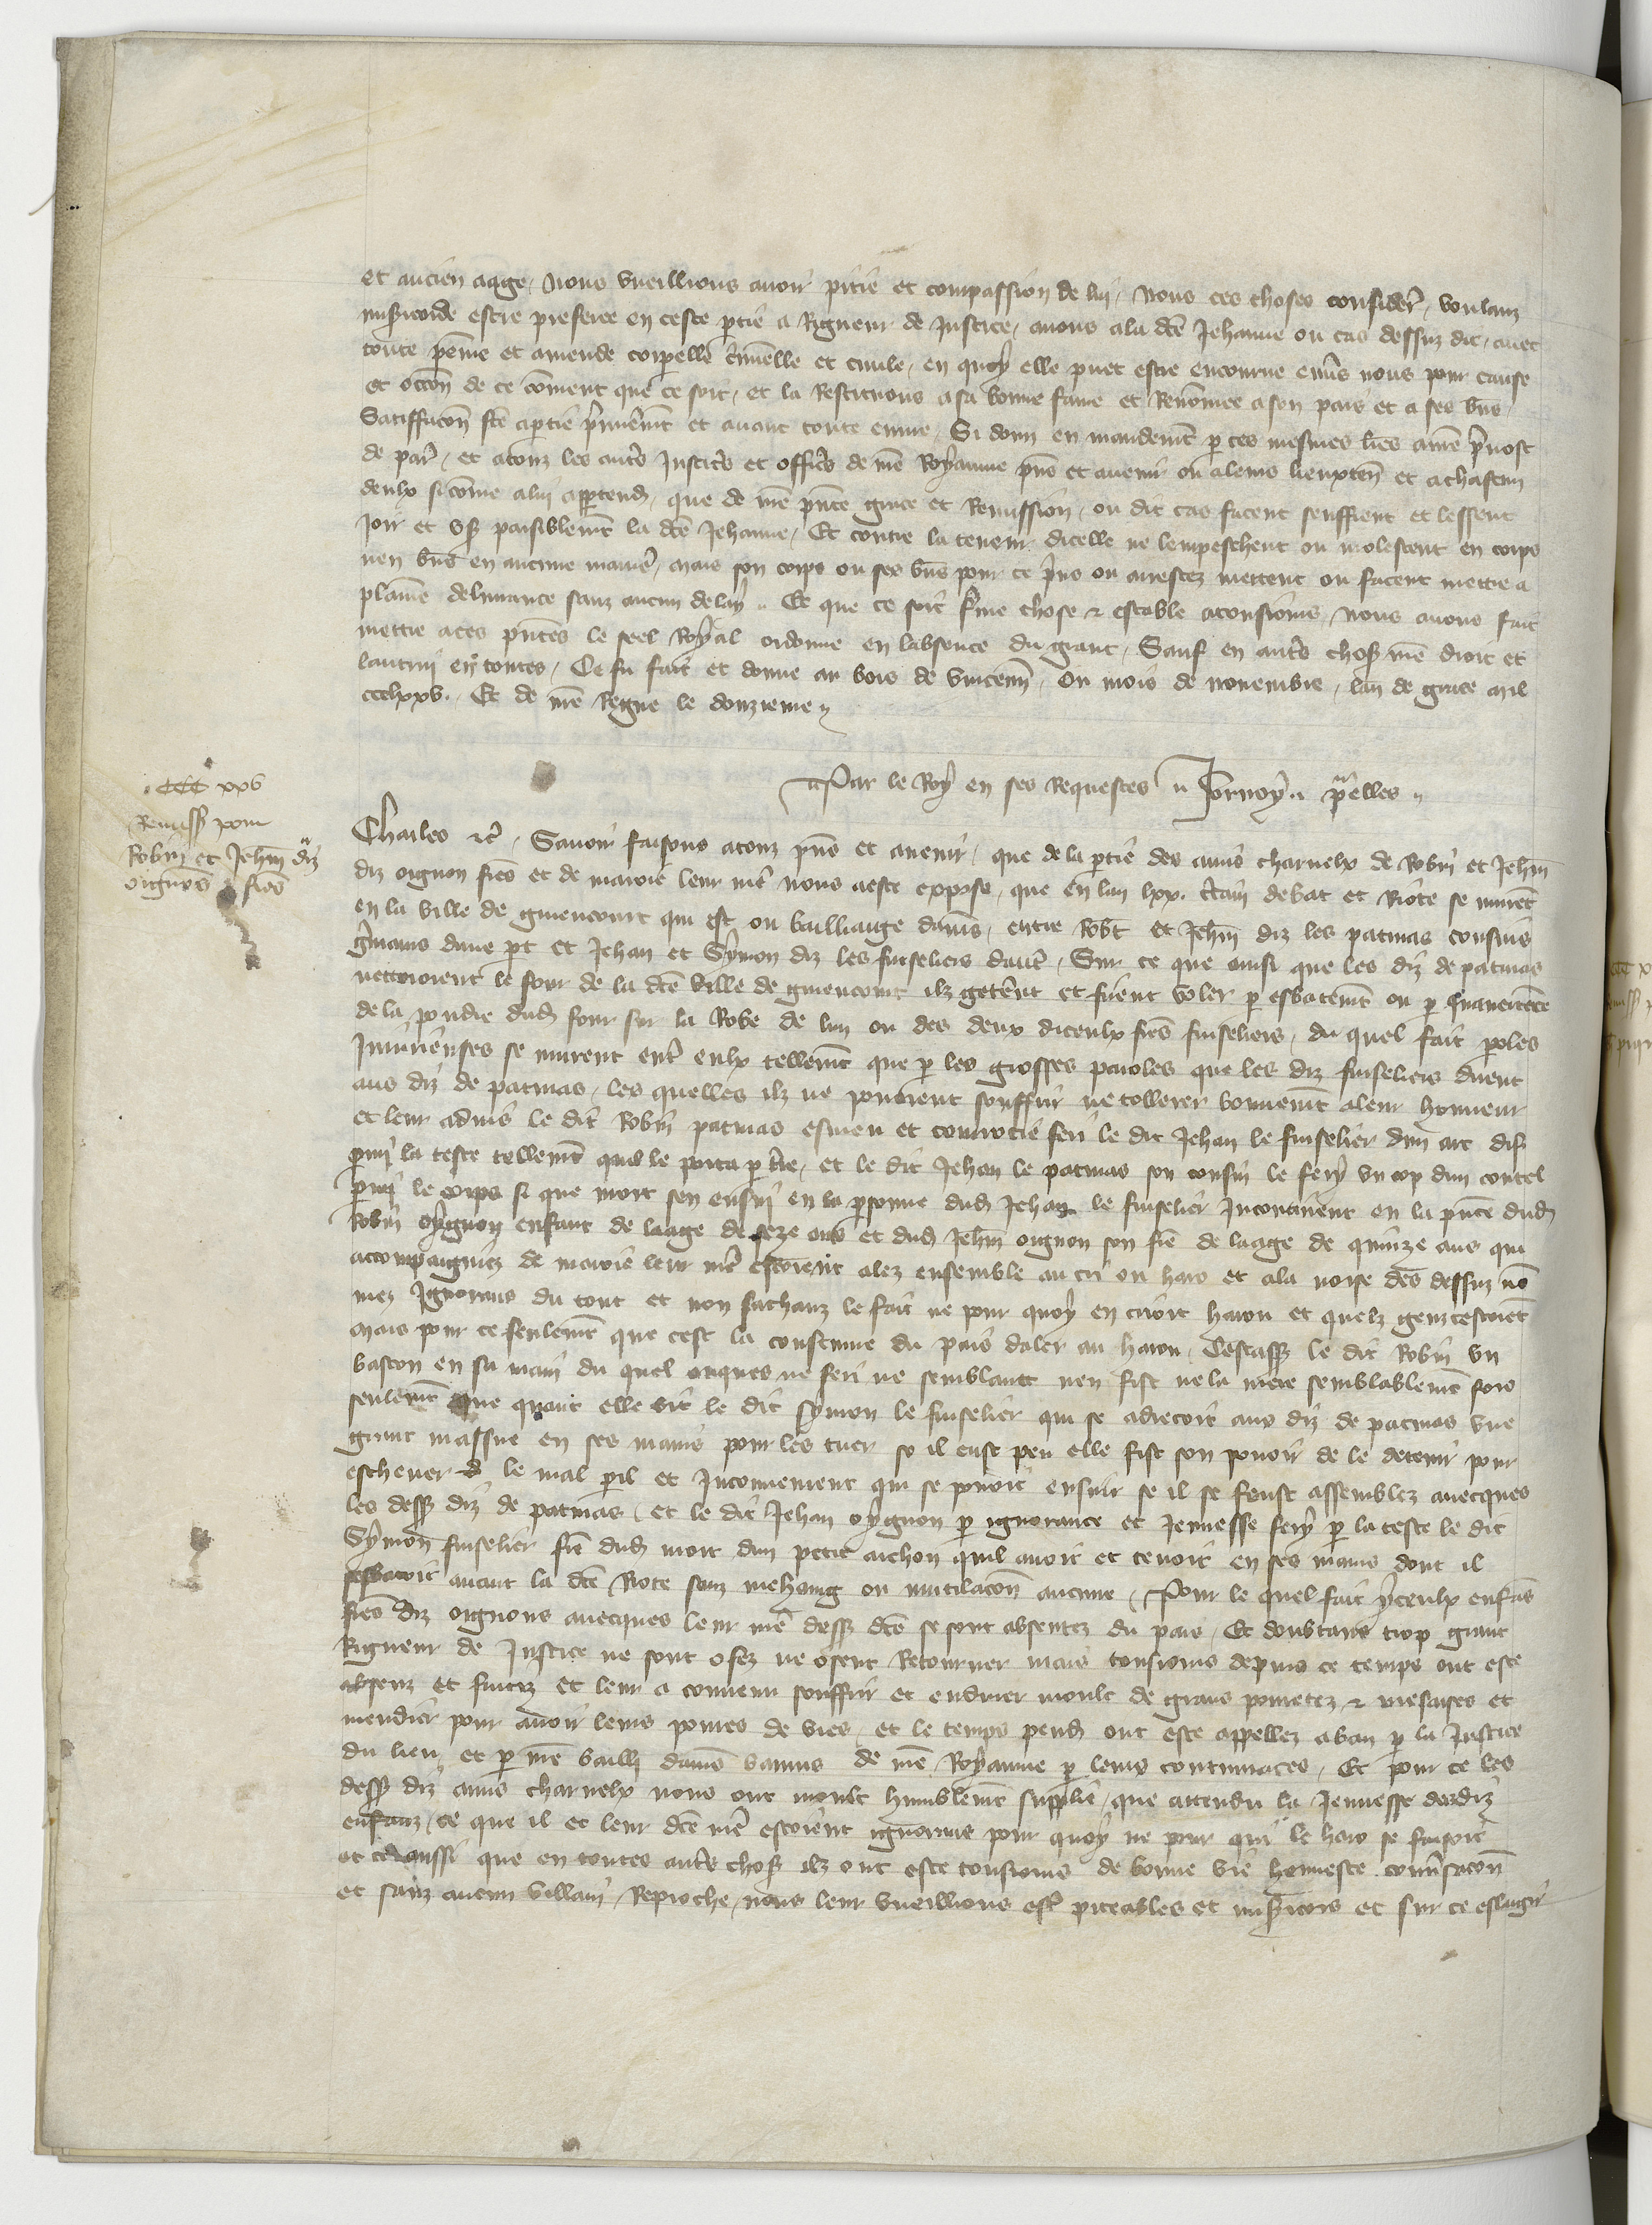 et ancien aage, Nous vueillions avoir pitié et compassion de lui, Nous ces choses consideré, voulanz
misericorde estre preferee en ceste ptie a Rigueur de Justice, avons ala dce Jehanne ou cas dessuz dit,
toute peinne et amende corpelle criminelle et civile, en quoy elle puet estre encourue envs nous pour cause
et occon de ce coment que ce soit, et la Restituons a sa bonne fame et Renommee a son pais et a ses bns
Satiffacon fce aptie primieremt et avant toute euvre, Si donn en mandemt p ces mesmes lres aure prevost
de par, et atouz les auts Justicrs et officrs de nre Royaume pns et avenir ou aleurs lieuxten et achascun
deulx sicome alui apptendra, que de nre pnte grace et Remission, ou dit cas facent seuffrent et lessent
Joir et user paisiblemt la dce Jehanne, Et contre la teneur dicelle ne lempeschent ou molestent en corps
nen bns en aucune manie, mais son corps ou ses bns pour ce prins ou arrestez mettent ou facent mettre a
plaine delivrance sanz aucun delay, Et que ce soit ferme chose et estable atousiours, Nous avons fait
mettre aces pntes le seel Royal ordonne en labsence du grant, Sauf en auts chos nre droit et
lautrui en toutes, Ce fu fait et donne au bois de vincenn, Ou mois de novembre, lan de grace mil
ccclxxv. Et de nre Regne le douzieme
Par le Roy en ses Requestes
. CCC xxv
Remiss pour
Robin et Jehan diz
oignons fres
Charles etc. Savoir faisons atouz pns et avenir, que de la ptie des amis charnelx de Robin et Jehan
diz oignon freres et de maroie leur mere nous aeste expose, que en lan lxx. ctain debat et Riote se murent
en la ville de guiencourt qui est ou bailliaige damis, entre Robt et Jehan diz les patinas cousins
gmains dune pt et Jehan et Symon diz les fuiseliers dautre, Sur ce que ainsi que les diz de patinas
nettoioient le four de la dce ville de guiencourt ilz geterent et firent voler p esbatemt ou p
de la poudre dud four sur la Robe de lun ou des deux diceulx freres fuiseliers, du quel fait poles
Injurieuses se murent entre eulx tellemt que p les grosses paroles que les diz fuiseliers dirent
aus diz de patinas, les quelles ilz ne povoient souffrir ne tollerer bonnemt aleur honneur
et leur advis le dit Robin patinas esmeu et courrocie feri le dit Jehan le fuiselier dun
pmi la teste tellemt quil le porta p tre, et le dit Jehan le patinas son cousin le fery un cop dun coutel
pmi le corps si que mort sen ensui en la psonne dud Jehan le fuiselier Incontinent en la pnce dud
Robin oygnon enfant de laage de seze ans et dud Jehan oignon son frere de laage de quinze ans qui
accompaigniez de maroie leur mere estoient alez ensemble au cri ou haro et ala noise des dessuz nom
mez Ignorans du tout et non sachanz le fait ne pour quoy en crioit harou et quelz genz cestoiet
Mais pour ce seulemt que cest la coustume du pais daler au harou, Cestass le dit Robin un
baston en sa main du quel onques ne feri ne semblant nen fist ne la mere semblablemt fors
seulemt que quant elle vit le dit symon le fuiselier qui se adrecoit aus diz de patinas une
grant massue en ses mains pour les tuer se il eust peu elle fist son povoir de le detenir pour
eschever le mal pil et Inconvenient qui se povoit ensuir se il se feust assemblez avecques
les dess diz de patinas, et le dit Jehan oygnon p ignorance et Jeunesse fery p la teste le dit
Symon fuiselier frere dud mort dun petit archon quil avoit et tenoit en ses mains dont il
sesbatoit avant la dce Riote sanz mehaing ou mutilacon aucune, Pour le quel fait yceulx enfans
freres diz oignons avecques leur mere dess dce se sont absentez du pais, Et doubtans trop grant
Rigueur de Justice ne sont osez ne osent Retourner mais tousiours depuis ce temps ont este
absenz et fuitiz et leur a convenu souffrir et endurer moult de grans povretez et mesaises et
mendier pour avoir leurs povres de vies, et le temps pend ont este appellez aban p la Justice
du lieu, et p nre bailli damis bannis de nre Royaume p leurs contumaces, Et pour ce les
dess diz amis charnelx nous ont moult humblemt supplie, que attendu la Jeunesse desdiz
enfanz, ce que il et leur dce mere estoient ignorans pour quoy ne pour qui le haro se faisoit
et aussi que en toutes auts chos ilz ont este tousiours de bonne vie honneste conversacon
et sanz aucun villain Reproche, nous leur vueillions estre piteables et misericors et sur ce eslargir